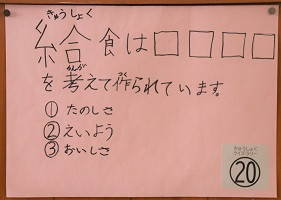 きゅうしょく
給食は□□□□
かんが つく
を考えて作られています。
① たのしさ
② えいよう
③ おいしさ
きゅうしょく
クイズラリー
⑳